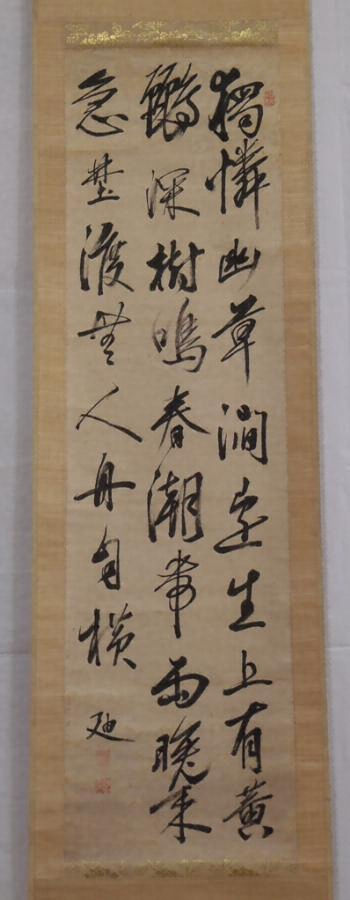 獨憐幽草澗邊生上有黃
鸝深樹鳴春潮帶雨晚来
急埜渡無人舟自横